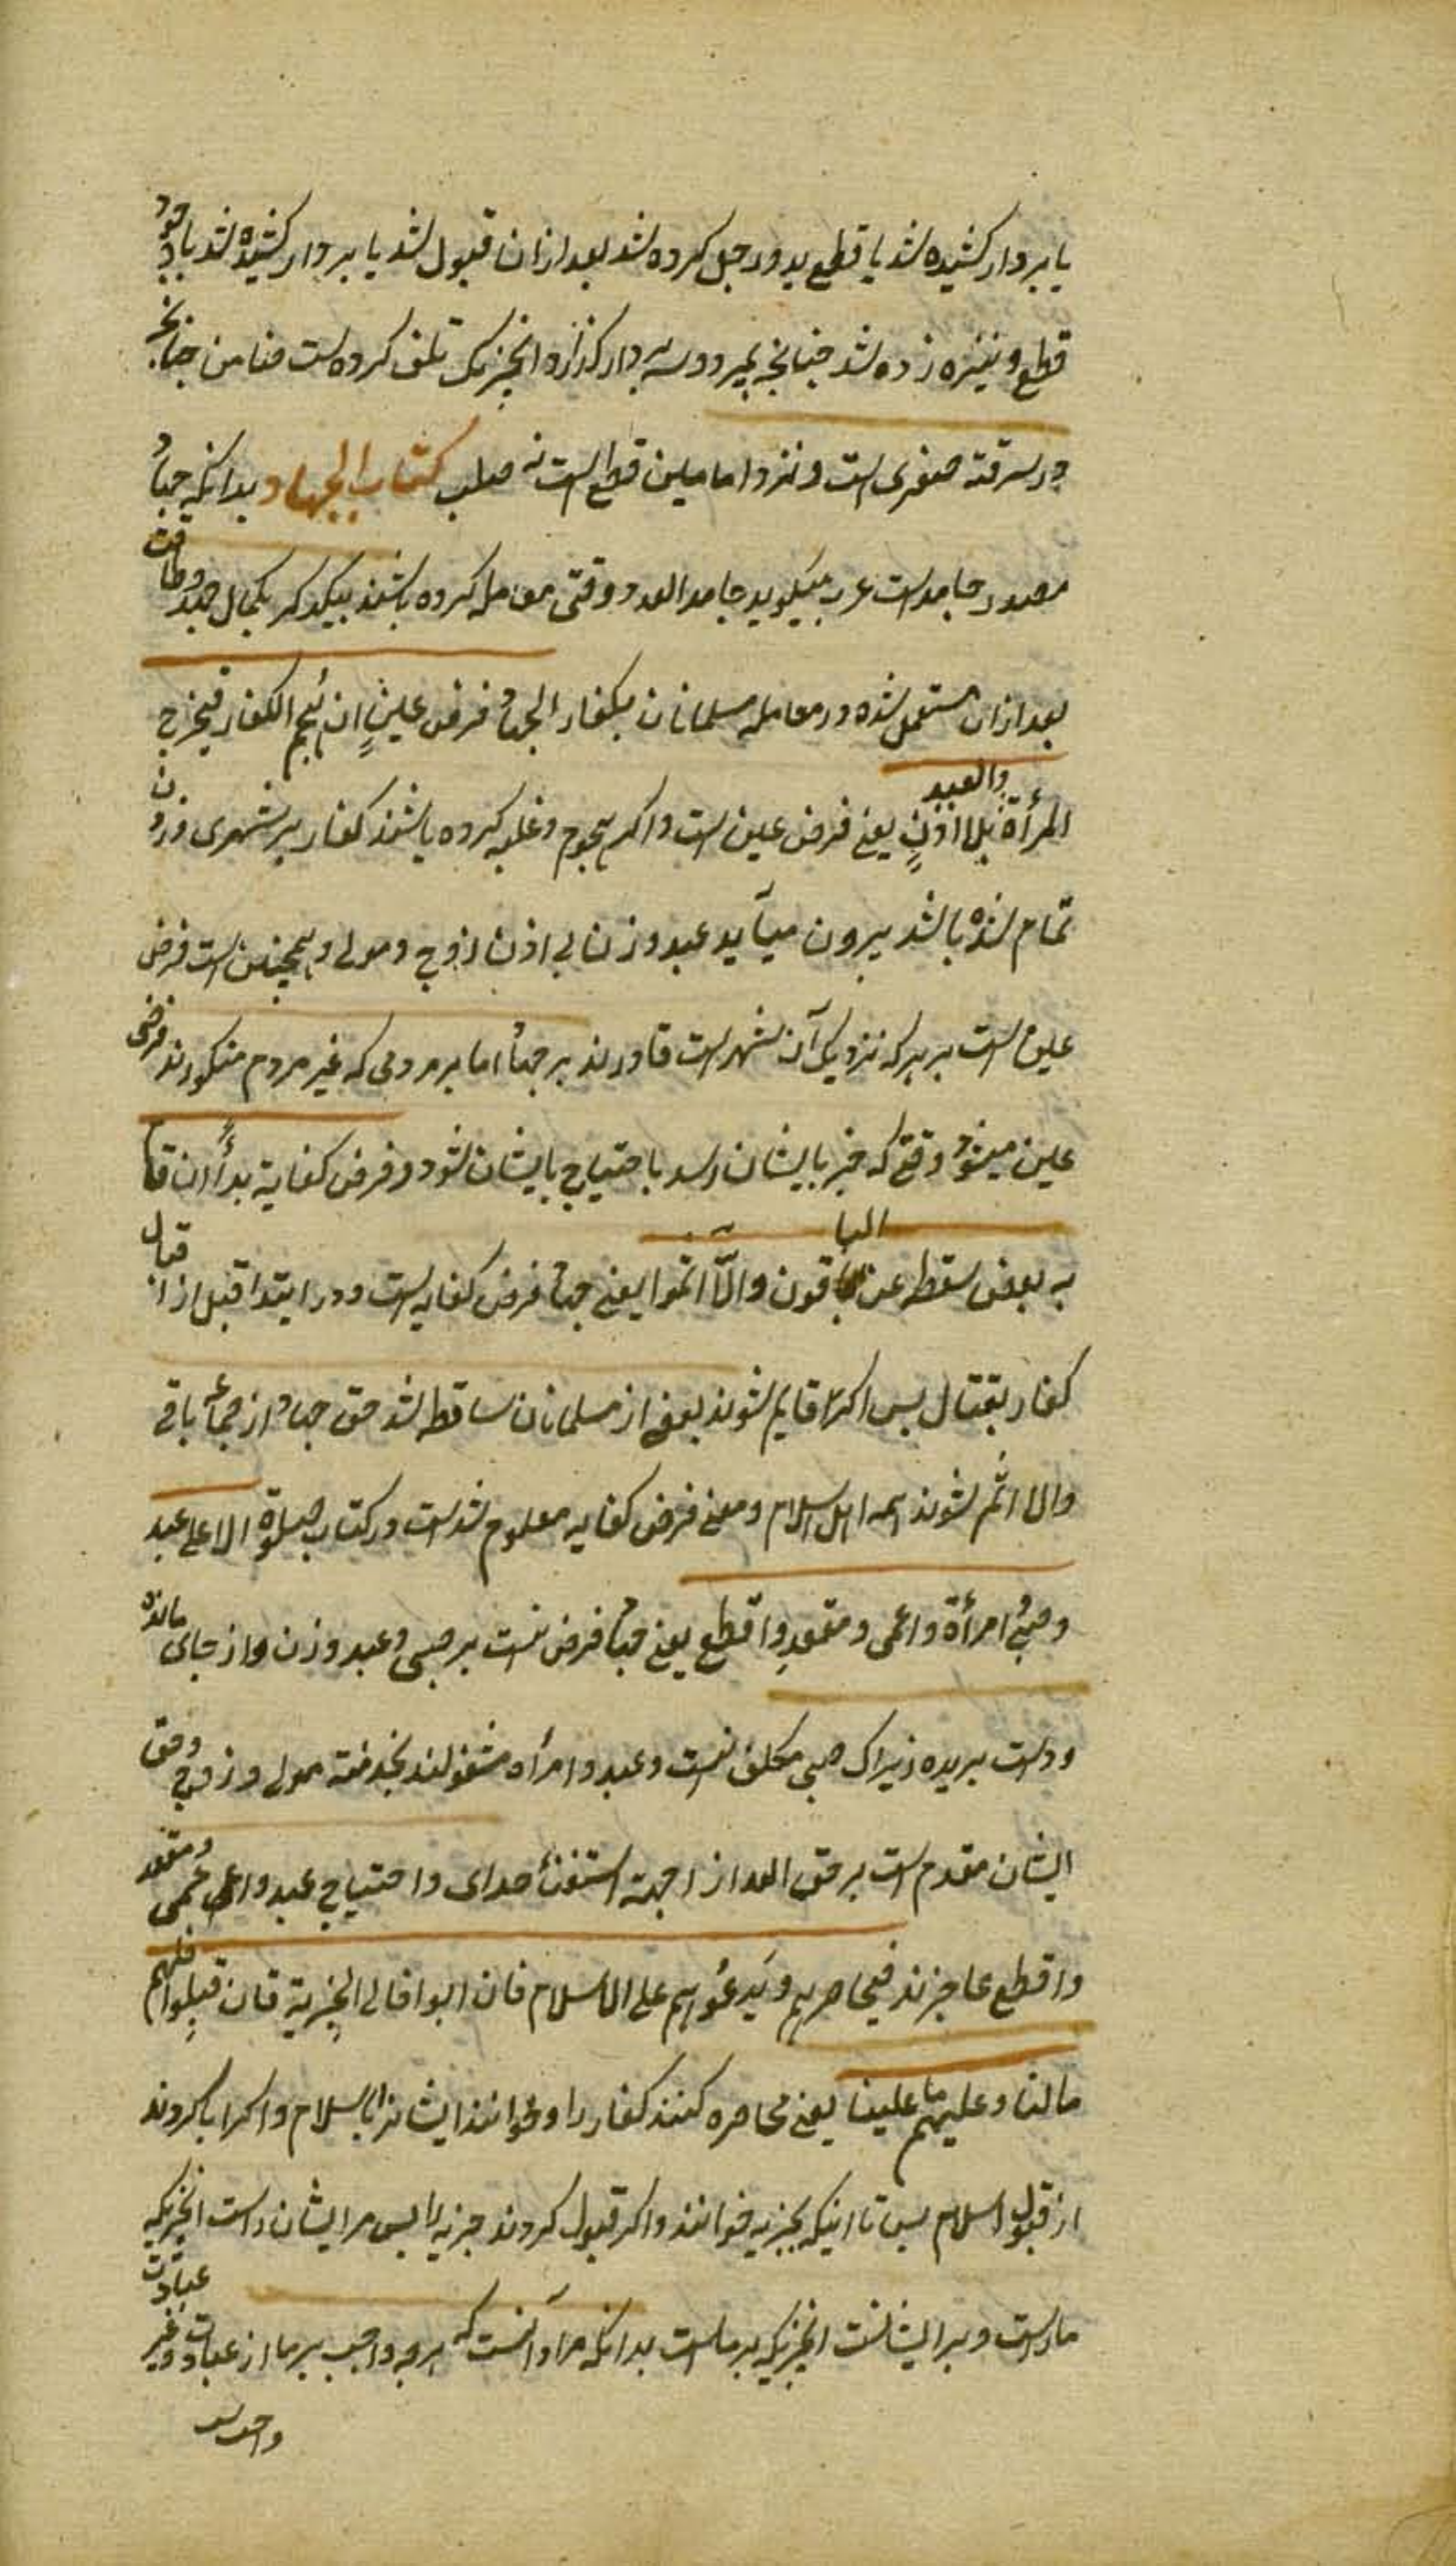 یا بر دار کشیده شد یا قطع ید و رجل کرده شد بعد ازان قبول شد یا بر دار کشیده شد با وجود
قطع و نیزه زده شد چنانچه بمیرد و سه بر دار کذارد انچیزیک تلف کرده است ضامن چنانچه
در سرقه صغری است و نزد امامین قطع است نه صلب کتاب الجهاد بدانکه جهاد
مصدر جاهد است عرب میکوید جاهد العدو وقتی معامله کرده باشند بیکدیکر بکمال جهد و طاقت
بعد ازان مستعمل شده در معامله مسلمانان بکفار الجهاد فرض عین ان هجم الکفار فیخرج
المرأة والعبد بلا اذن یعنی فرض عین است و اکر هجوم و غلبه کرده باشند کفار بر شهری
تمام شده باشد بیرون میآید عبد و زن بی اذن زوج و مولی و همچنین است فرض
عین است بر هر که نزدیک آن شهر است قادرند بر جهاد اما بر مردمی که غیر مردم مذکورند فرض
عین میشود وقتی که خبر بایشان رسد یا احتیاج بایشان شود و فرض کفایة بدأ ان قام
به بعض سقط عن الباقون والا اثموا یعنی جهاد فرض کفایه است و در ابتدا قبل از قتال
کفار بقتال پس اکر قایم شوند بعضی از مسلمانان ساقط شد حق جهاد از جماعه باقی
والا اثم شوند همه اهل اسلام و معنی فرض کفایه معلوم شد است در کتاب صلوة لا علی عبد
وصبی وامرأة واعمی ومقعد واقطع یعنی جهاد فرض نیست بر صبی و عبد و زن و از جای مانده
و دست بریده زیراک صبی مکلف نیست و عبد و امرأه مشغولند بخدمة مولی و زوج و حق
ایشان مقدم است بر حق الله از جهة استغناء خدای و احتیاج عبد و اعمی و مقعد
واقطع عاجزند فیحاصرهم ویدعوهم علی الاسلام فان ابوا فالی الجزیة فان قبلوا فلهم
مالنا وعلیهم ما علینا یعنی محاصره کنند کفار را و خوانند ایشانرا باسلام و اکر ابا کردند
از قبول اسلام پس تا اینکه بجزیه خوانند و اکر قبول کردند جزیه را پس مر ایشان راست انچیزیکه
ماراست و بر ایشانست انچیزیکه بر ماست بدانکه مراد آنست که هرچه واجب بر ما از عبادت و غیر عبادت